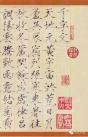 千字文
天地元黃宇宙洪荒日月
盈昃辰宿列張寒來暑往
秋收冬藏閏餘成歲律呂
調陽雲騰致雨露結為霜